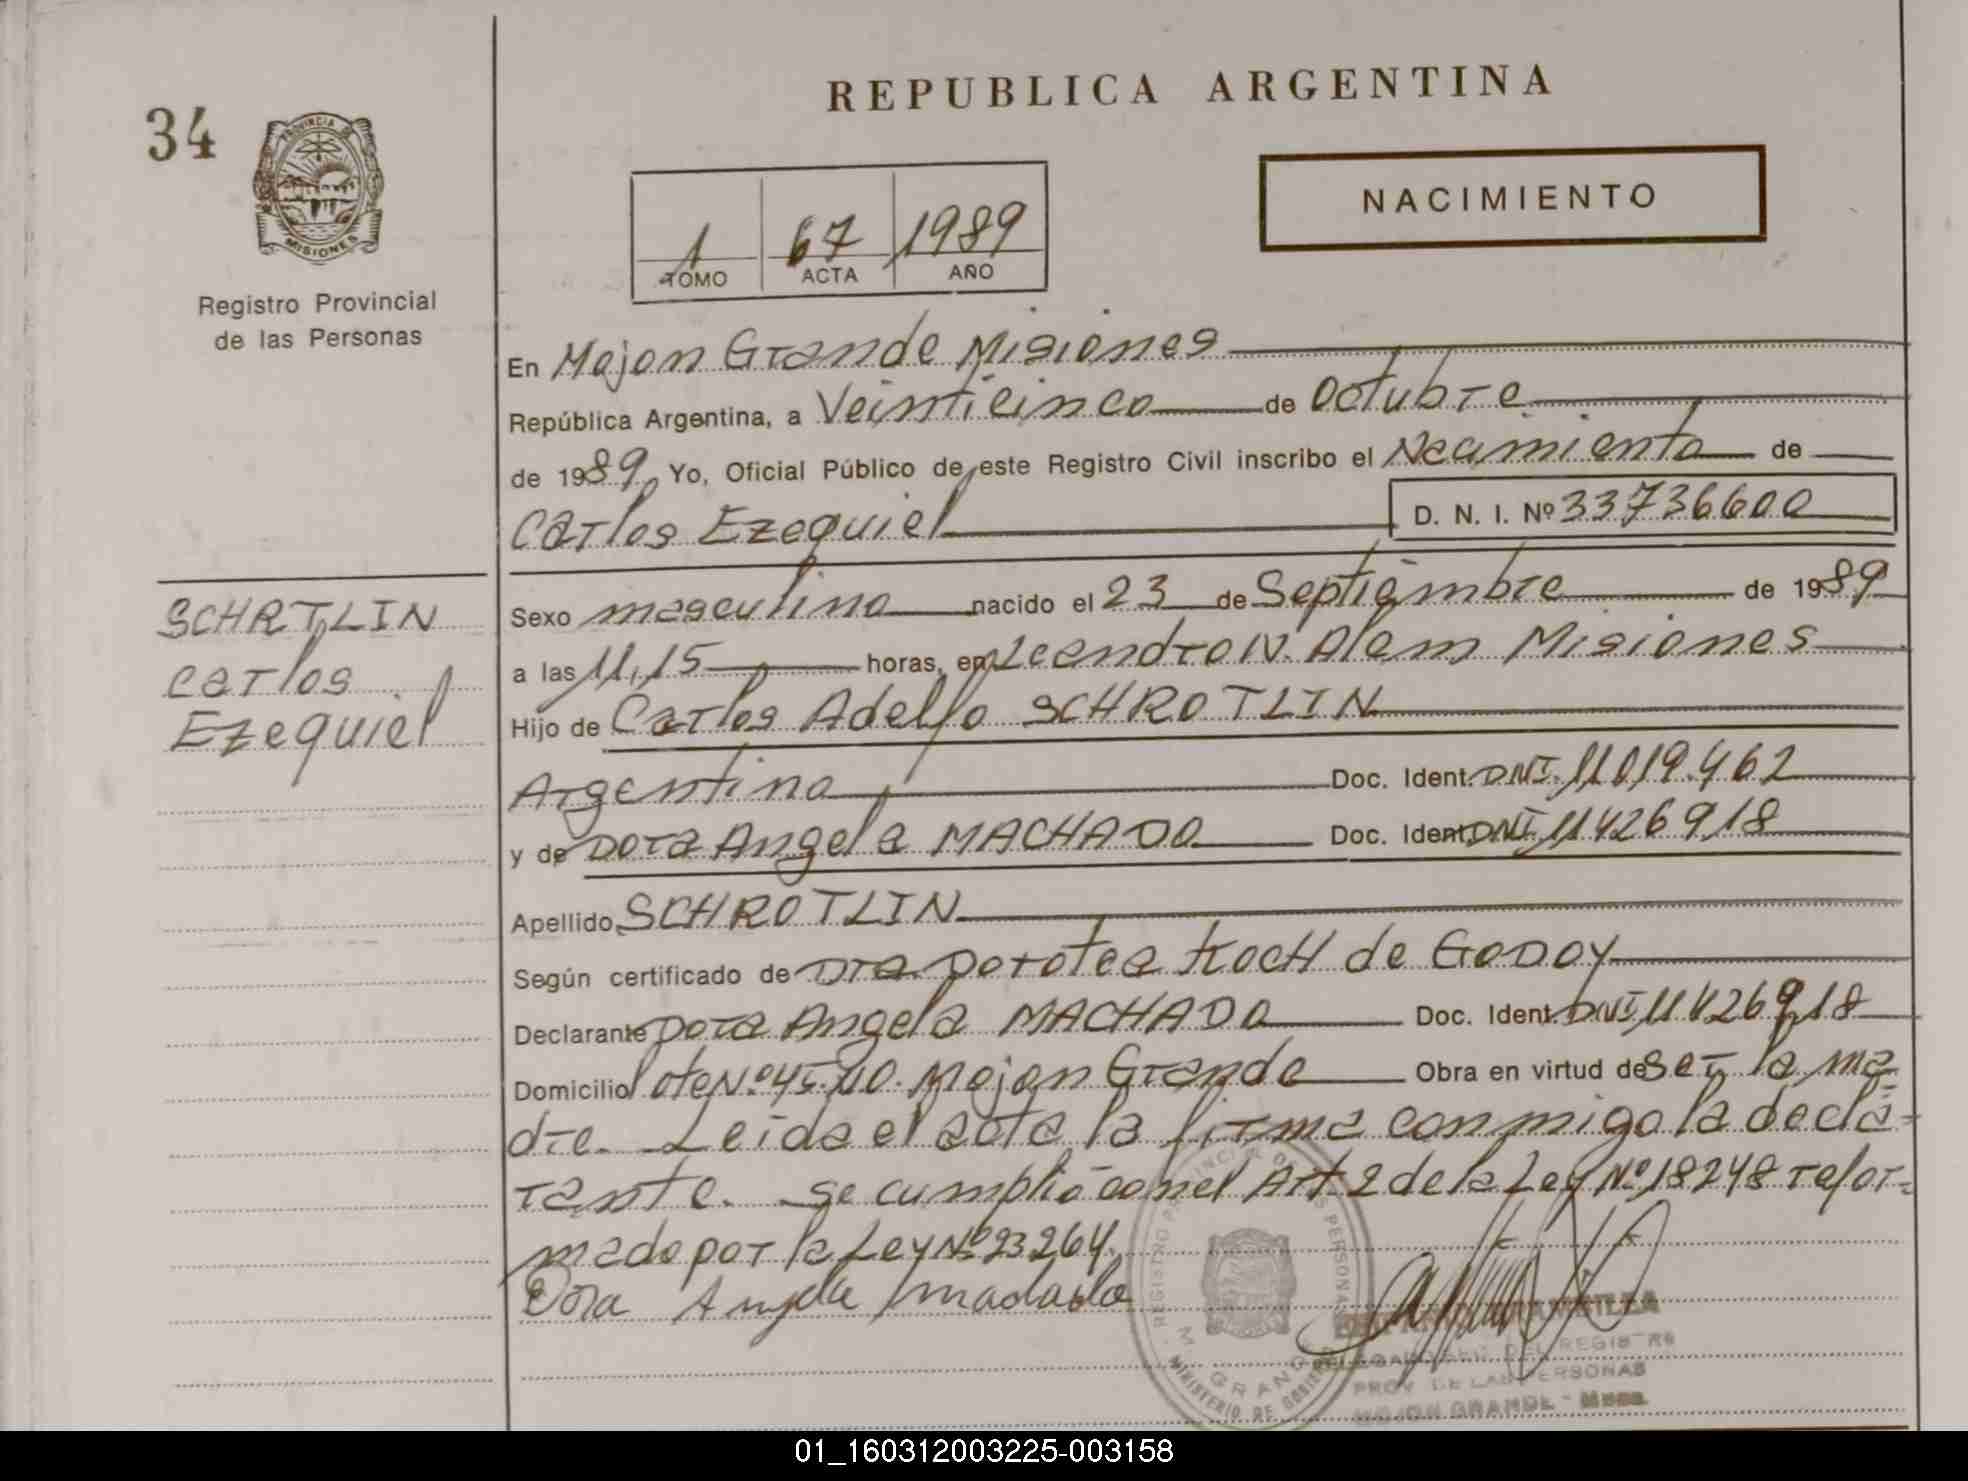 REPUBLICA ARGENTINA
34
PROVINCIA DE
MISIONES
Registro Provincial
de las Personas
NACIMIENTO
1 67 1989
TOMO ACTA AÑO
En Mojon Grande Misiones
República Argentina, a Veinticinco de Octubre
de 1989 Yo, Oficial Público de este Registro Civil inscribo el Nacimiento de
Carlos Ezequiel D. N. I. Nº 33736600
SCHRTLIN
Carlos
Ezequiel
Sexo masculino nacido el 23 de Septiembre de 1989
a las 11,15 horas, en Leandro N. Alem Misiones
Hijo de Carlos Adelfo SCHROTLIN
Argentino Doc. Ident. DNI. 11019.462
y de Dora Angela MACHADO Doc. Ident. DNI 11426918
Apellido SCHROTLIN
Según certificado de Dra Dorotea KocH de GODOY
Declarante Dora Angela MACHADO Doc. Ident. DNI 11426918
Domicilio lote Nº Mojon Grande Obra en virtud de ser la ma
dre. Leida el acta la firma conmigo la decla-
rante. Se cumplió con el Art. 2 de la Ley Nº 18248 refor-
mado por la Ley Nº 23264.
Dora Angela Machado
REGISTRO PROVINCIAL DE LAS PERSONAS
M. GRANDE
MINISTERIO DE GOBIERNO
DEL REGISTRO
PROV. DE LAS PERSONAS
MOJON GRANDE - Mnes.
01_160312003225-003158